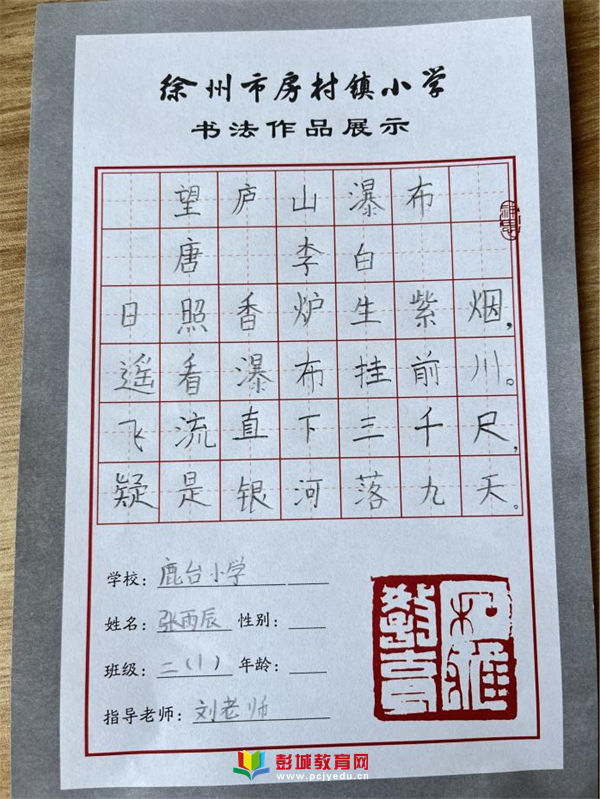 徐州市房村镇小学
书法作品展示
望庐山瀑布
唐 李白
日照香炉生紫烟，
遥看瀑布挂前川。
飞流直下三千尺，
疑是银河落九天。
学校：鹿台小学
姓名：张雨辰 性别：
班级：二（1） 年龄：
指导老师：刘老师
彭城教育网
www.pcjyedu.cn